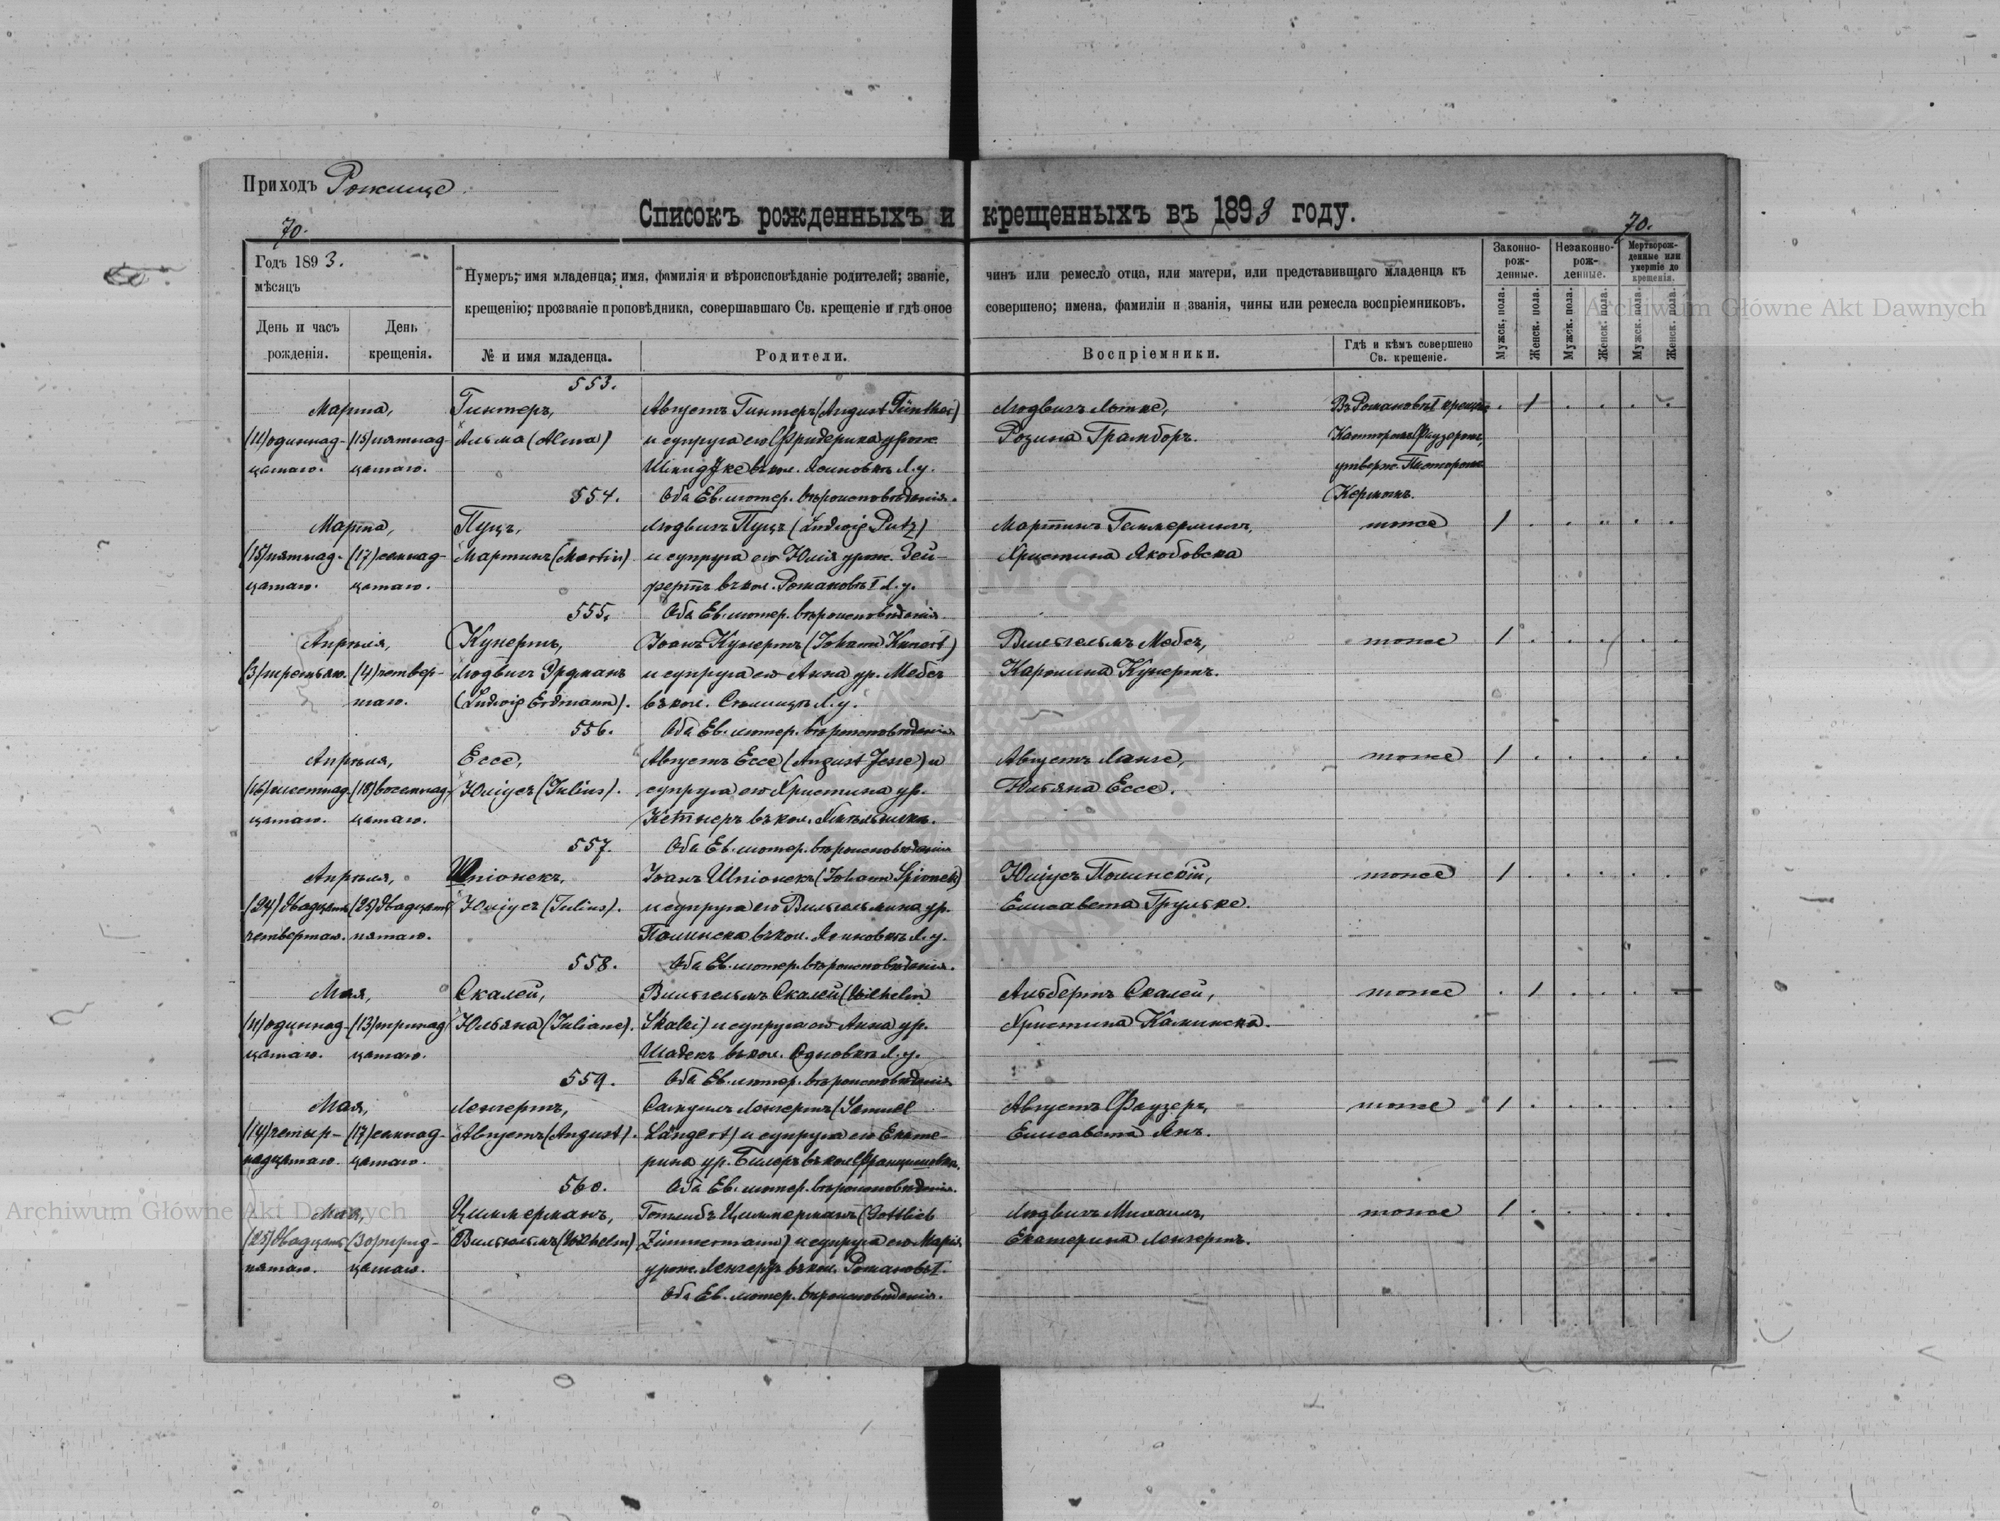 Приходъ Рожище
Списокъ рожденныхъ и крещенныхъ въ 1893 году.
70. 70.
Годъ 1893.
мѣсяцъ
День и часъ рожденія.
День крещенія.
Нумеръ; имя младенца; имя, фамилія и вѣроисповѣданіе родителей; званіе, чинъ или ремесло отца, или матери, или представившаго младенца къ
крещенію; прозваніе проповѣдника, совершавшаго Св. крещеніе и гдѣ оное совершено; имена, фамиліи и званія, чины или ремесла воспріемниковъ.
№ и имя младенца.
Родители.
Воспріемники.
Гдѣ и кѣмъ совершено Св. крещеніе.
Законно-рож-денные.
Незаконно-рож-денные.
Мертворож-денные или умершіе до крещенія.
Мужск. пола.
Женск. пола.
Мужск. пола.
Женск. пола.
Мужск. пола.
Женск. пола.
553.
Марта, Гинтеръ, Августъ Гинтеръ (August Günther) Людвигъ Лотке, Въ Романовѣ I крещ.
(11) одиннад- (15) пятнад- Альма (Alma) и супруга его Фридерика урож. Розина Грамборъ. Канторомъ Фаузеромъ,
цатаго. цатаго. въ кол. Ясиновкѣ Л. у. утверж. Пасторомъ
554. Оба Ев. лютер. вѣроисповѣданія. Керномъ.
Марта, Пуцъ, Людвигъ Пуцъ (Ludwig Putz) Мартинъ Гиммерлингъ, тоже 1
(15) пятнад- (17) семнад- Мартинъ (Martin) и супруга его Юлія урож. Зей- Христина Якобовска
цатаго. цатаго. фертъ въ кол. Романовъ I Л. у.
555. Оба Ев. лютер. вѣроисповѣданія.
Апрѣля, Кунертъ, Іоанъ Кунертъ (Johann Kunert) Вильгельмъ Мебсъ, тоже 1
(3) третьяго. (4) четвер- Людвигъ Эрдманъ и супруга его Анна ур. Мебсъ Каролина Кунертъ.
таго. (Ludwig Erdmann). въ кол. Л. у.
556. Оба Ев. лютер. вѣроисповѣданія
Апрѣля, Ессе, Августъ Ессе (August Jesse) и Августъ Ланге, тоже 1
(16) шестнад- (18) восемнад- Юліусъ (Julius). супруга его Христина ур. Юльяна Ессе.
цатаго. цатаго. Кетнеръ въ кол.
557. Оба Ев. лютер. вѣроисповѣданія
Апрѣля, Шпіонекъ, Іоанъ Шпіонекъ (Johann Spionek) Юліусъ Полинскій, тоже 1
(24) двадцать (25) двадцать Юліусъ (Julius). и супруга его Вильгельмина ур. Елисавета Грульке.
четвертаго. пятаго. Полинска въ кол. Ясиновкѣ Л. у.
558. Оба Ев. лютер. вѣроисповѣданія.
Мая, Скалей, Вильгельмъ Скалей (Wilhelm Альбертъ Скалей, тоже 1
(11) одиннад- (13) тринад- Юльяна (Juliane). Skalei) и супруга его Анна ур. Христина Каминска.
цатаго. цатаго. Шадекъ въ кол. Л. у.
559. Оба Ев. лютер. вѣроисповѣданія
Мая, Ленгертъ, Самуилъ Ленгертъ (Samuel Августъ Фаузеръ, тоже 1
(14) четыр- (17) семнад- Августъ (August). Längert) и супруга его Екате- Елисавета Янъ.
надцатаго. цатаго. рина ур. Билеръ въ кол. Францишовка.
560. Оба Ев. лютер. вѣроисповѣданія.
Мая, Циммерманъ, Готлибъ Циммерманъ (Gottlieb Людвигъ Михаилъ, тоже 1
(25) двадцать (30) трид- Вильгельмъ (Wilhelm) Zimmermann) и супруга его Марія Екатерина Ленгертъ.
пятаго. цатаго. урож. Ленгертъ въ кол. Романовъ I.
Оба Ев. лютер. вѣроисповѣданія.
Archiwum Główne Akt Dawnych
Archiwum Główne Akt Dawnych